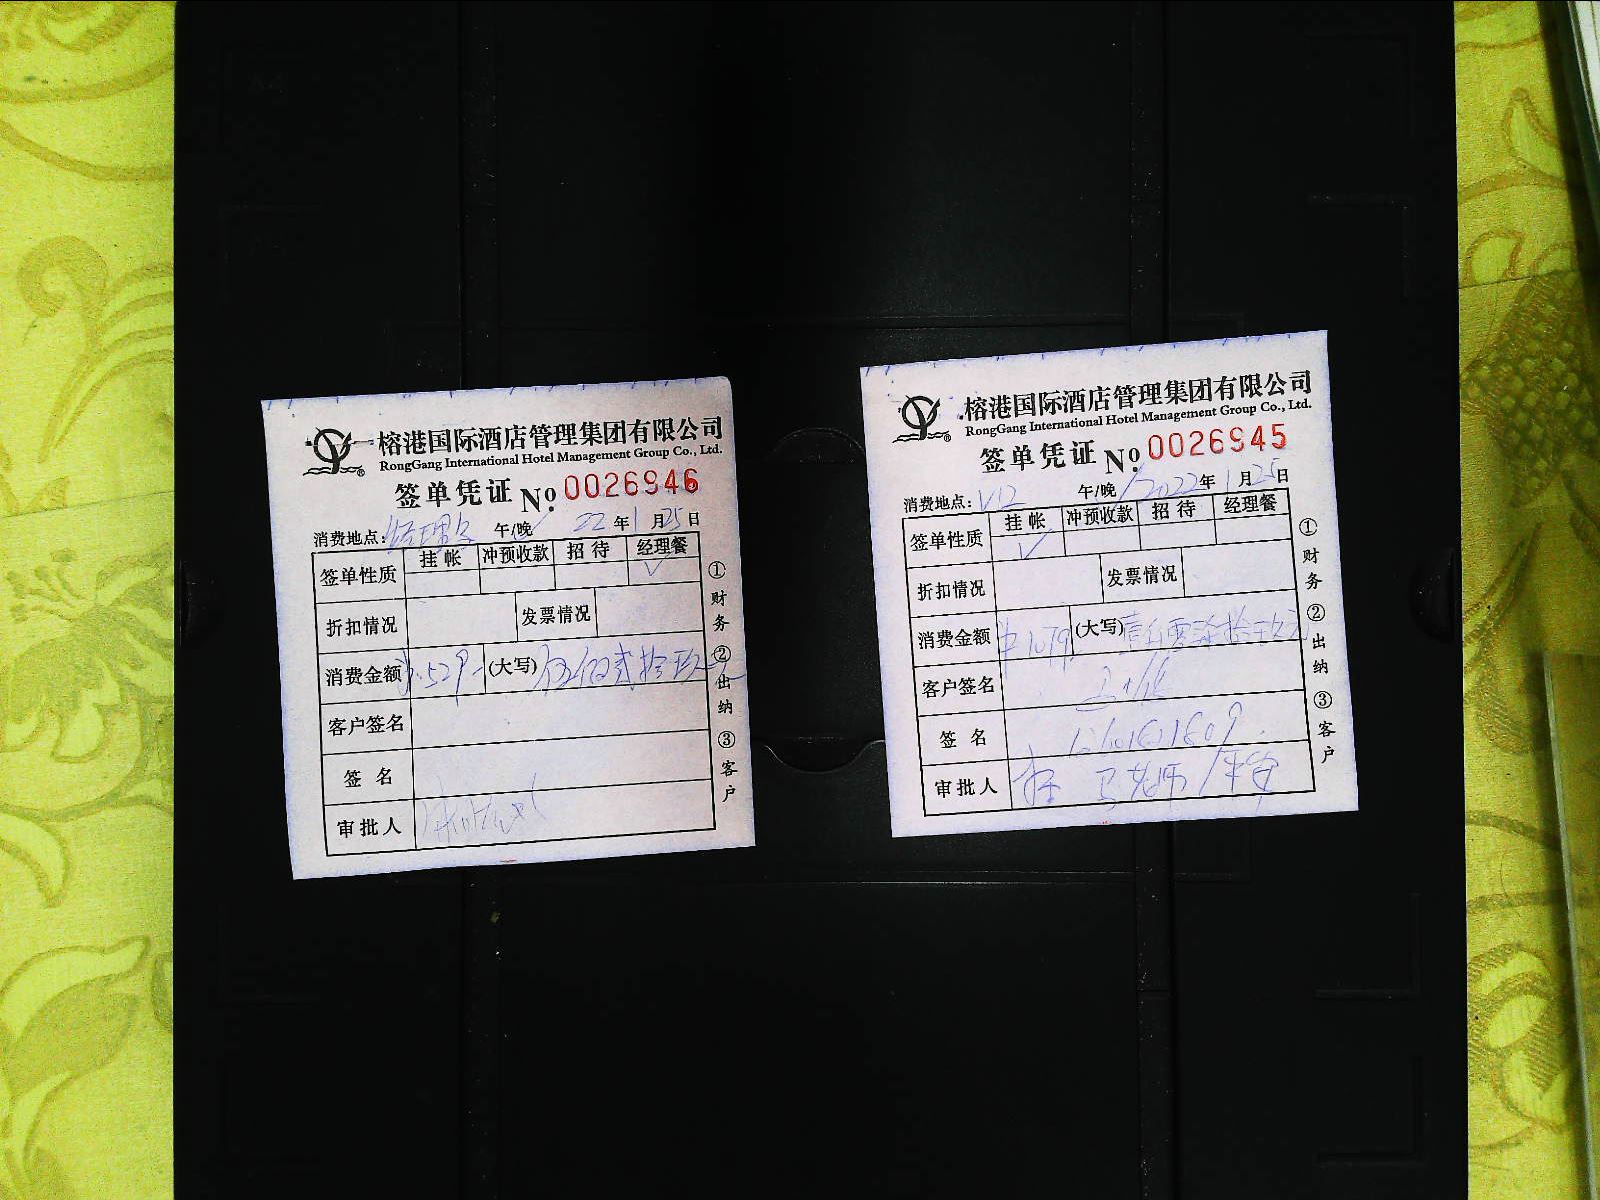 榕港国际酒店管理集团有限公司
RongGang International Hotel Management Group Co., Ltd.
签单凭证 No. 0026946
消费地点: 经理 午/晚 22年1月25日
签单性质 挂帐 冲预收款 招待 经理餐
✓
折扣情况 发票情况
消费金额 ¥529- (大写) 伍佰贰拾玖
客户签名
签 名
审批人
①财务 ②出纳 ③客户
榕港国际酒店管理集团有限公司
RongGang International Hotel Management Group Co., Ltd.
签单凭证 No. 0026945
消费地点: V12 午/晚 2022年1月25日
签单性质 挂帐 冲预收款 招待 经理餐
✓
折扣情况 发票情况
消费金额 ¥1079 (大写) 壹仟零柒拾玖元
客户签名
签 名
审批人 老师
①财务 ②出纳 ③客户